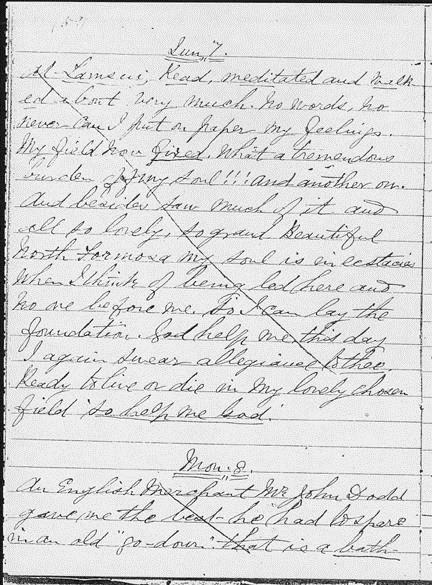 Sun, 7.
At Tamsui, Read, meditated and walk
ed about very much. No words, no
never can I put on paper my feelings.
My field now fixed. What a tremendous
burden off my soul!!! and another on.
And besides saw much of it and
all so lovely, so grand Beautiful
North Formosa my soul is in ecstacies
When I think of being led here and
No one before me. So I can lay the
foundation. God help me this day
I again swear allegiance to thee.
Ready to live or die in my lovely chosen
field so help me God.
Mon. 8.
An English Merchant Mr John Dodd
gave me the best he had to spare
in an old "go-down" that is a bath-